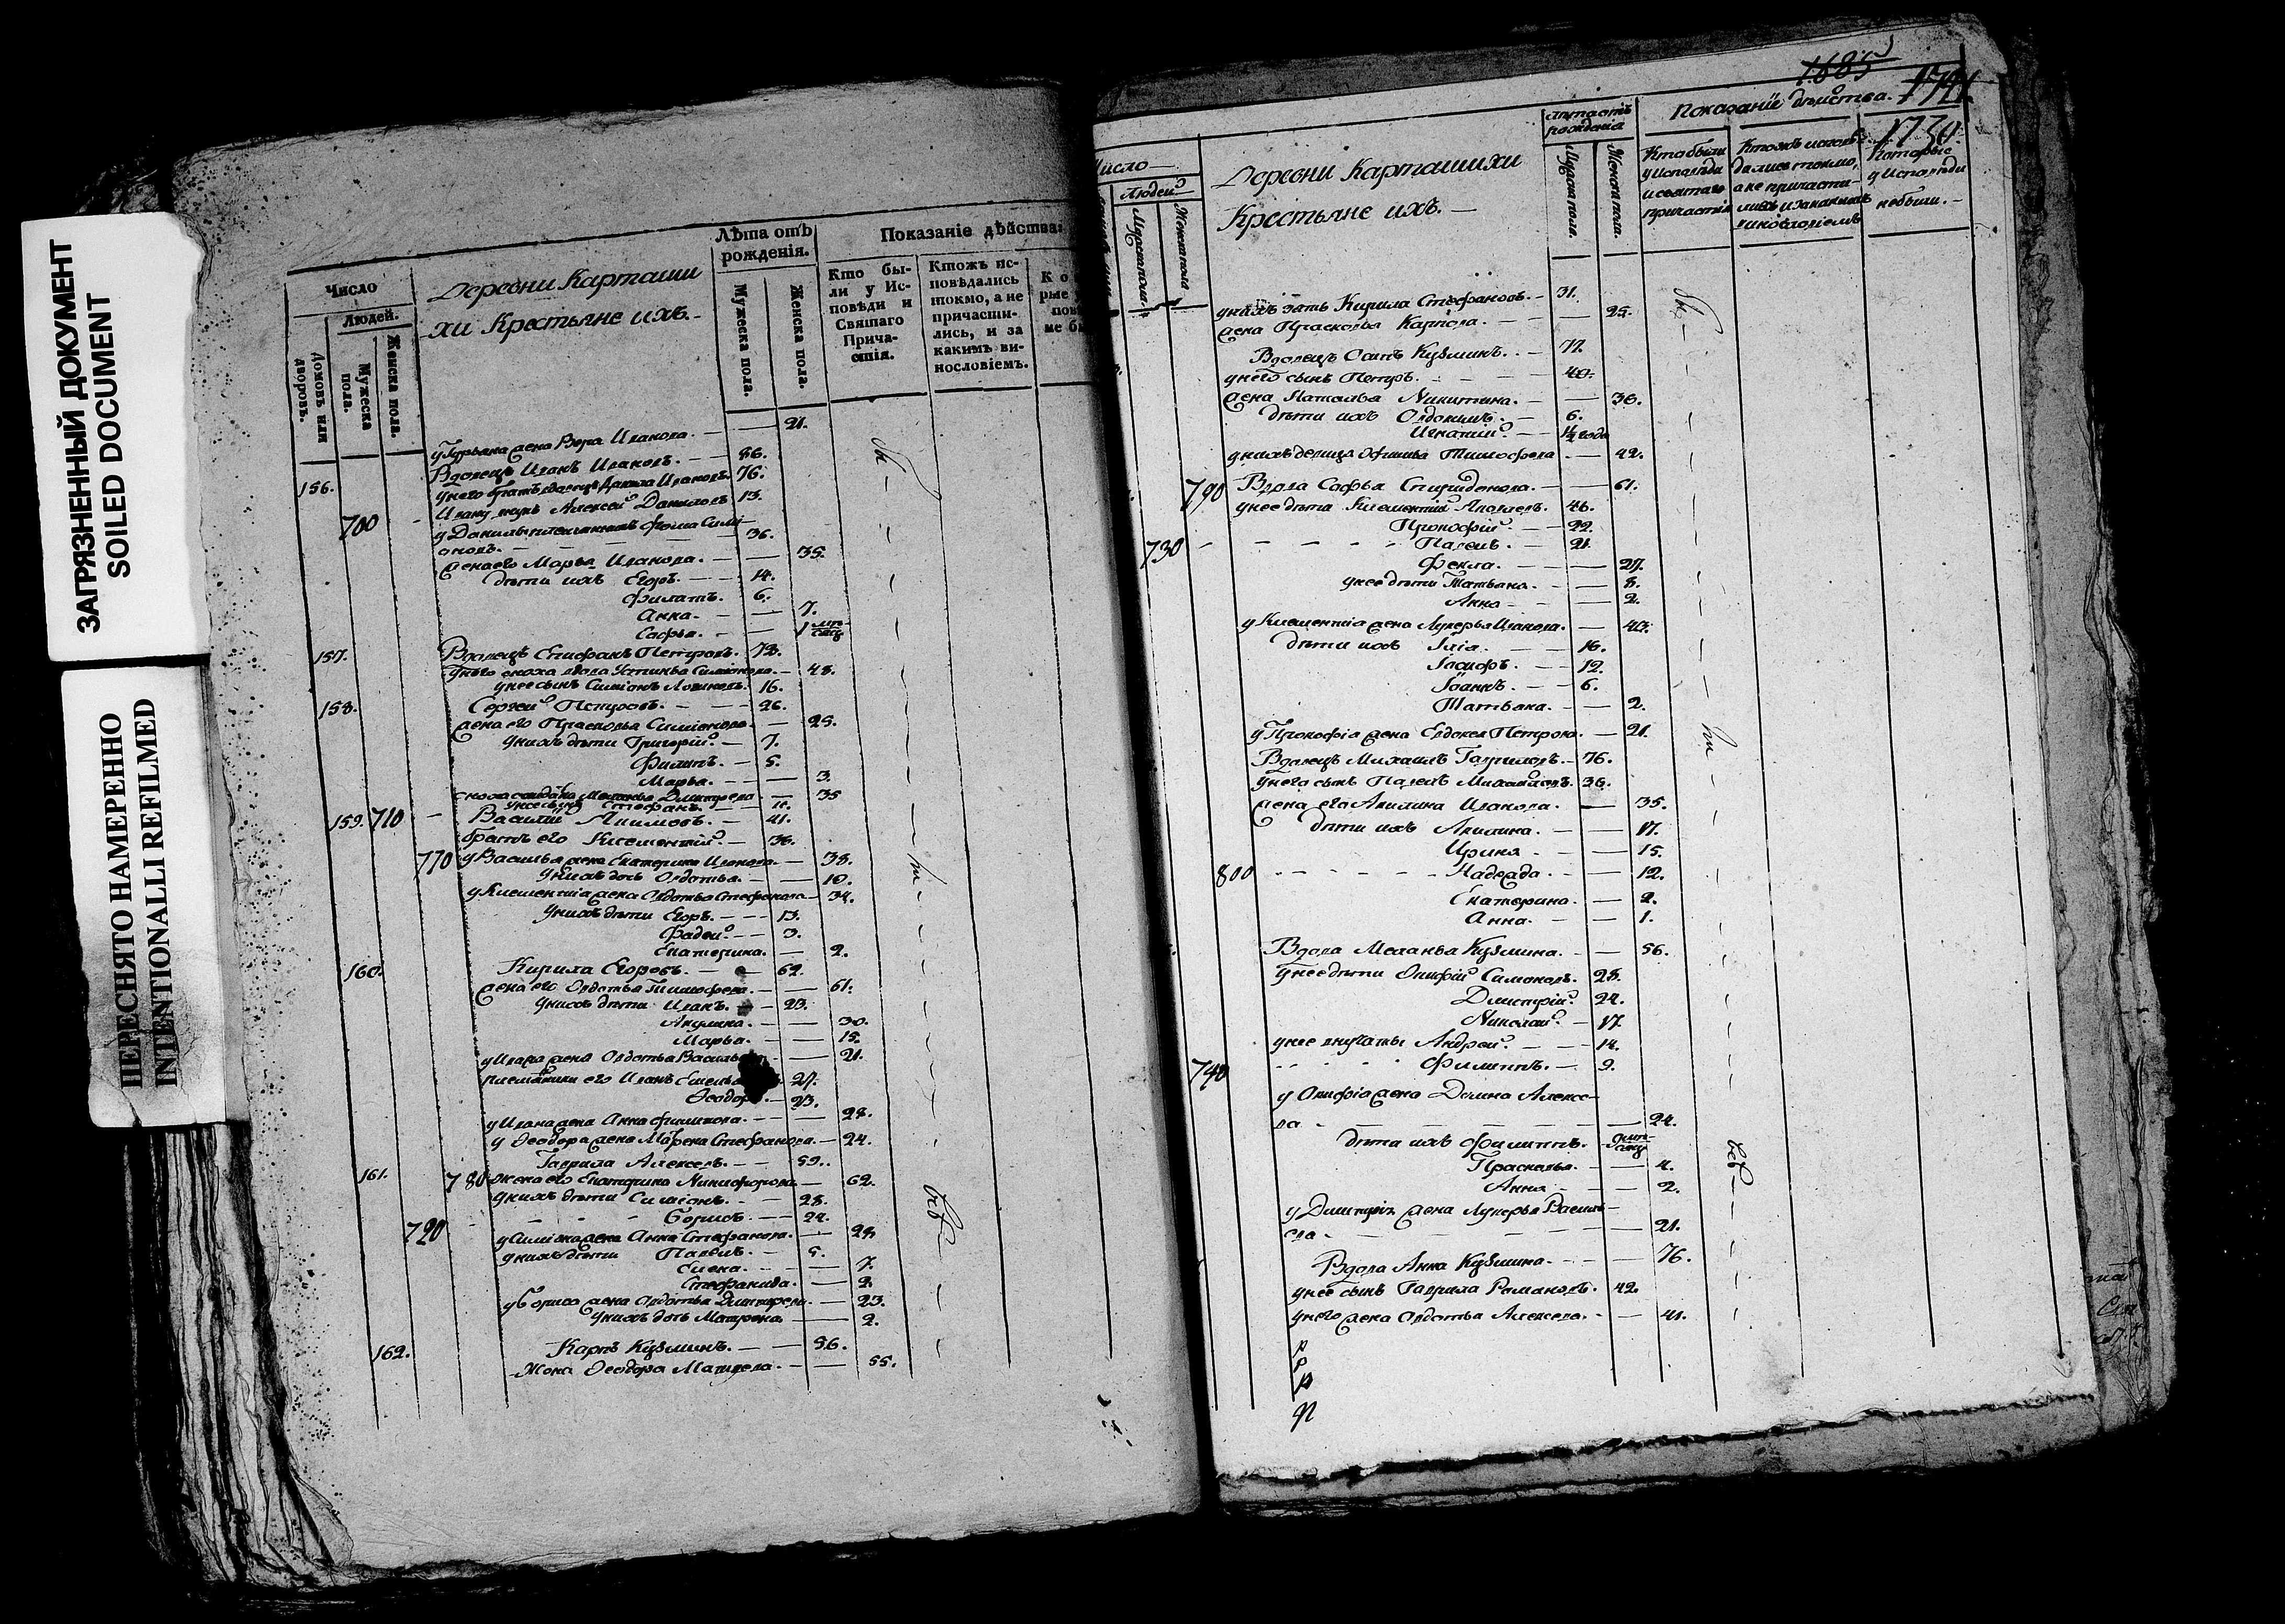 ЗАГРЯЗНЕННЫЙ ДОКУМЕНТ
SOILED DOCUMENT
ПЕРЕСНЯТО НАМЕРЕННО
INTENTIONALLI REFILMED
Число
Людей.
Домовъ или дворовъ.
Мужеска пола.
Женска пола.
Деревни Карташи
хи Крестьяне ихъ.
Лѣта отъ рожденія.
Мужеска пола.
Женска пола.
Показаніе дѣйства:
Кто бы-
ли у Ис-
повѣди и
Святаго
Прича-
стія.
Ктожъ ис-
повѣдались
токмо, а не
причасти-
лись, и за
какимъ ви-
нословіемъ.
у Гурьяна жена Вера Иванова. — — 21.
156. Вдовецъ Иванъ Ивановъ. — 86.
у него братъ вдовецъ Данила Ивановъ. 76.
700 - Ивану внукъ Алексей Даниловъ 13.
у Данилы племянникъ Фома Сими
оновъ. — 36.
жена его Марья Иванова. — — 35.
дѣти ихъ Егоръ. — 14.
Филатъ. 6.
Анна. — — 7.
Софья. — — 1
157. Вдовецъ Стефанъ Петровъ. 72.
у него сноха вдова Устинья Симионова. — 48.
у нее сынъ Симионъ Логиновъ. 16.
158. Сергей Петровъ. — — 26.
жена его Прасковья Симионова. — 25.
у нихъ дѣти Григорій. — 7.
Филипъ. — 5.
Марья. — — 3.
сноха солдатка Меланья Дмитрева — 35
у нее сынъ Стефанъ. — 11.
159. 710 - Василий Акимовъ. — 41.
братъ его Климентий. — 36.
770 у Василья жена Екатерина Иванова. — 38.
у нихъ дочь Авдотья. — — 10.
у Климентія жена Авдотья Стефанова — 34.
у нихъ дѣти Егоръ. — — 13.
Фадей. — 3.
Екатерина. — 2.
160. Кирила Егоровъ. — — 62.
жена его Авдотья Тимофеева. — — 61.
у нихъ дѣти Иванъ. — 23.
Акулина. — — 30.
Марья. — — 15.
у Ивана жена Авдотья — — 21.
племянники его Иванъ — 27.
Ѳеодоръ. — 23.
у Ивана жена Анна Филипова. — — 28.
у Ѳеодора жена Марфа Стефанова. — 24.
161. Гаврила Алексевъ. — — 59.
780 жена его Екатерина Никифорова — 62.
у нихъ дѣти Симионъ. — — 28.
720 - Борисъ. — 24.
у Симиона жена Анна Стефанова. — 28.
у нихъ дѣти Павелъ. — 5.
Елена. — — 7.
Стефанида. — 2.
у Бориса жена Авдотья Дмитрева. — 23.
у нихъ дочь Матрона — 2.
162. Карпъ Кузминъ. — — 56.
Жена Ѳеодора Матвеева. — — 55.
1685
1721
1730
Число
Людей
Мужеска пола.
Женска пола
Деревни Карташихи
Крестьяне ихъ. —
Лѣта отъ рожденія
Мужеска пола.
Женска пола.
Показанїе дѣйства.
Кто были
у исповѣди
и святаго
причастія
Ктожъ исповѣ
дались токмо,
а не причасти-
лись и за какимъ
винословіемъ
Которые
у исповѣди
не были. —
у нихъ зять Кирила Стефановъ. — 31.
жена Прасковья Карпова. — — 25.
Вдовецъ Осипъ Кузминъ. — 77.
у него сынъ Петръ. — 40.
жена Наталья Никитина. — — 36.
дѣти ихъ Овдокимъ. — 6.
Игнатий. — 1½ года
у нихъ девица Офимья Тимофеева — 42.
790 Вдова Софья Спиридонова. — — 61.
у нее дѣти Климентий Яковлевъ. 46.
Прокофий. — 22.
730 - Павелъ. — 21.
Фекла. — — 27.
у нее дѣти Татьяна. — — 8.
Анна — — 2.
у Климентія жена Лукерья Иванова. — 43.
дѣти ихъ Ілія. — — 16.
Іосифъ. — — 12.
Іоаннъ. — — 6.
Татьяна. — — 2.
у Прокофія жена Евдокея Петрова. — 21.
Вдовецъ Михаилъ Гавриловъ. — 76.
у него сынъ Павелъ Михайловъ. 36.
жена его Акилина Иванова. — 35.
дѣти ихъ Акилина. — — 17.
Ирина — — 15.
800 - Надежда. — — 12.
Екатерина. — — 2.
Анна. — — 1.
Вдова Меланья Кузмина. — — 56.
у нее дѣти Онофрій Симоновъ. 28.
Дмитрій. 24.
Николай. — 17.
у нее внучаты Андрей. — — 14.
740 Филиппъ. — 9.
у Онофрія жена Домна Алексе-
ва - — 24.
дѣти ихъ Филиппъ.
Прасковья. — — 4.
Анна — — 2.
у Дмитрія жена Лукерья Василь-
ева - — 21.
Вдова Анна Кузмина. — — 76.
у нее сынъ Гаврила Романовъ. 42.
у него жена Авдотья Алексева. — — 41.